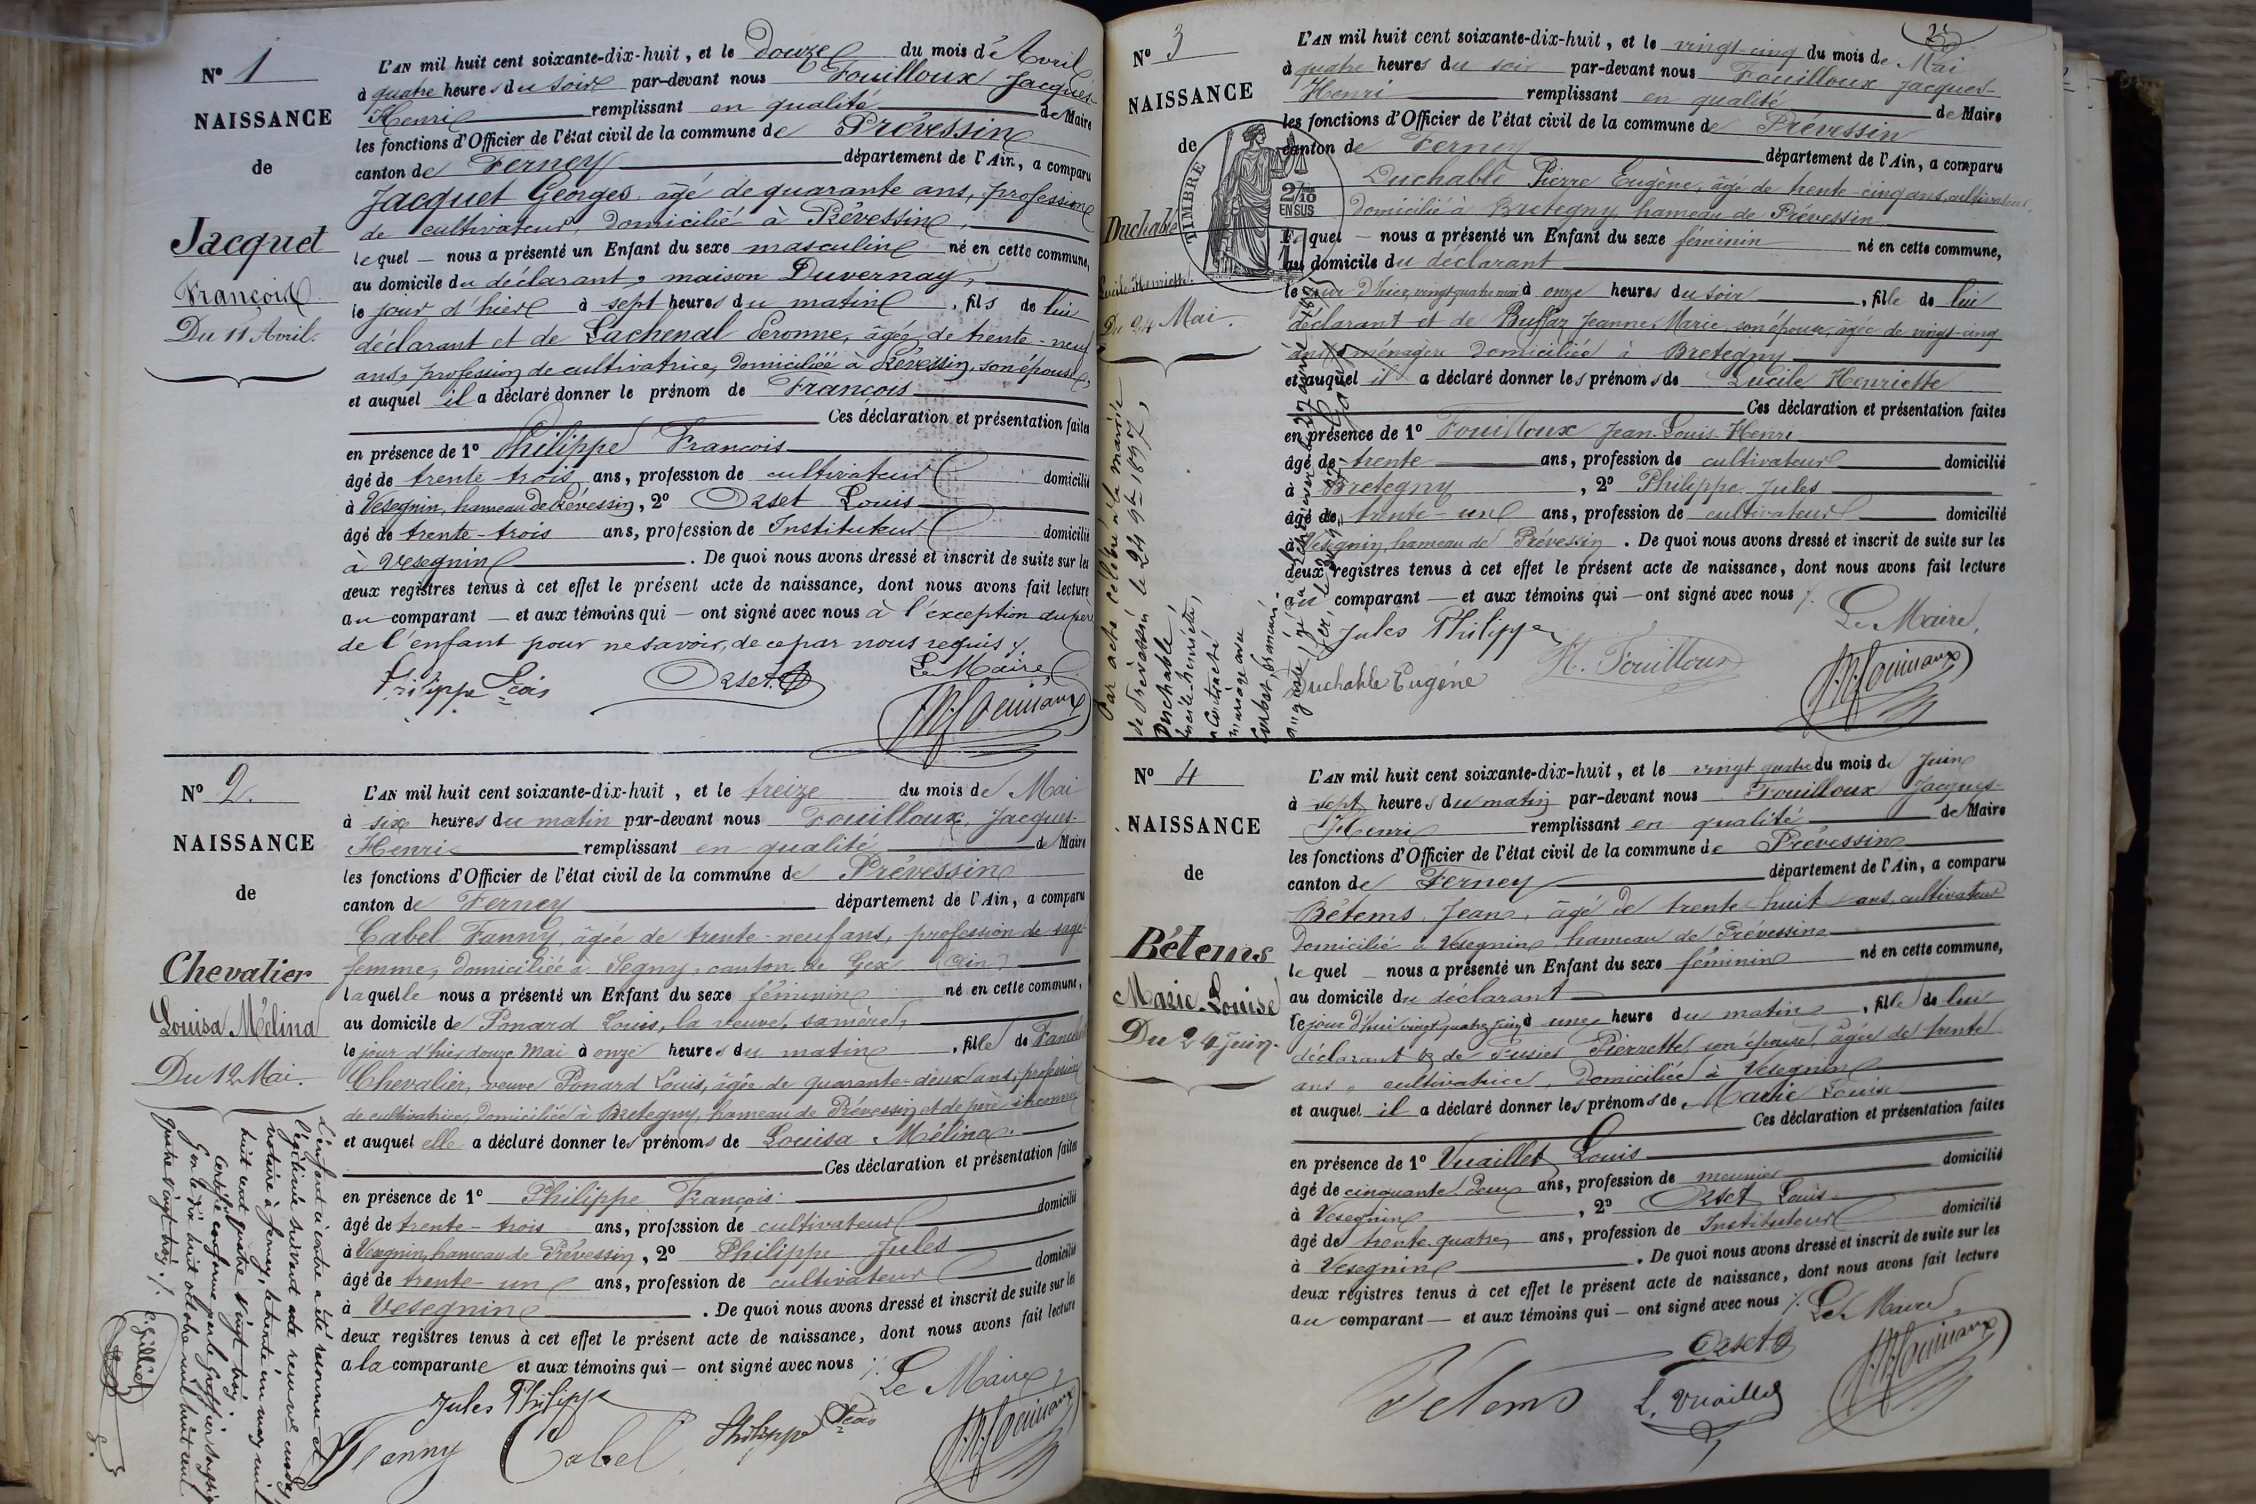 Nº 1
NAISSANCE
de
Jacquet
François
Du 11 Avril.
L'AN mil huit cent soixante-dix-huit, et le douze du mois d'Avril
à quatre heures du soir par-devant nous Fouilloux Jacques-
Henri remplissant en qualité de Maire
les fonctions d'Officier de l'état civil de la commune de Prévessin
canton de Ferney département de l'Ain, a comparu
Jacquet Georges âgé de quarante ans, profession
de cultivateur, domicilié à Prévessin,
lequel — nous a présenté un Enfant du sexe masculin né en cette commune,
au domicile du déclarant, maison Duvernay,
le jour d'hier à sept heures du matin, fils de lui
déclarant et de Lachenal Péronne, âgée de trente-neuf
ans, profession de cultivatrice, domiciliée à Prévessin, son épouse,
et auquel il a déclaré donner le prénom de François
Ces déclaration et présentation faites
en présence de 1º Philippe François
âgé de trente-trois ans, profession de cultivateur domicilié
à Vesegnin, hameau de Prévessin, 2º Orset Louis
âgé de trente-trois ans, profession de Instituteur domicilié
à Vesegnin. De quoi nous avons dressé et inscrit de suite sur les
deux registres tenus à cet effet le présent acte de naissance, dont nous avons fait lecture
au comparant — et aux témoins qui — ont signé avec nous à l'exception du père
de l'enfant pour ne savoir, de ce par nous requis /.
Philippe Fçois Orset Le Maire,
Nº 2.
NAISSANCE
de
Chevalier
Louisa Mélina
Du 12 Mai.
L'AN mil huit cent soixante-dix-huit, et le treize du mois de Mai
à six heures du matin par-devant nous Fouilloux, Jacques-
Henri remplissant en qualité de Maire
les fonctions d'Officier de l'état civil de la commune de Prévessin
canton de Ferney département de l'Ain, a comparu
Cabel Fanny, âgée de trente-neuf ans, profession de sage-
femme, domiciliée à Segny, canton de Gex (Ain)
laquelle nous a présenté un Enfant du sexe féminin né en cette commune,
au domicile de Ponard Louis, la veuve, sa mère,
le jour d'hier douze Mai à onze heures du matin, fille de
Chevalier, veuve Ponard Louis, âgée de quarante-deux ans, profession
de cultivatrice, domiciliée à Bretegny, hameau de Prévessin et de père inconnu
et auquel elle a déclaré donner les prénoms de Louisa Mélina.
Ces déclaration et présentation faites
en présence de 1º Philippe François.
âgé de trente-trois ans, profession de cultivateur domicilié
à Vesegnin, hameau de Prévessin, 2º Philippe Jules
âgé de trente-un ans, profession de cultivateur domicilié
à Vesegnin. De quoi nous avons dressé et inscrit de suite sur les
deux registres tenus à cet effet le présent acte de naissance, dont nous avons fait lecture
a la comparante et aux témoins qui — ont signé avec nous /. Le Maire,
Jules Philippe
Fanny Cabel Philippe Fçois
L'enfant ci-contre a été reconnu et
légitimé suivant acte reçu
notaire à Ferney, le trente un mars mil
huit cent quatre vingt trois
Certifié conforme par le Greffier soussigné
Gex le dix huit octobre mil huit cent
quatre vingt trois. /.
Nº 3
NAISSANCE
de
TIMBRE
2/10
EN SUS
Duchable
Lucile Henriette.
Du 24 Mai.
L'AN mil huit cent soixante-dix-huit, et le vingt-cinq du mois de Mai
à quatre heures du soir par-devant nous Fouilloux Jacques-
Henri remplissant en qualité de Maire
les fonctions d'Officier de l'état civil de la commune de Prévessin
canton de Ferney département de l'Ain, a comparu
Duchable Pierre Eugène, âgé de trente-cinq ans, cultivateur,
domicilié à Bretegny, hameau de Prévessin
lequel — nous a présenté un Enfant du sexe féminin né en cette commune,
au domicile du déclarant
le jour d'hier, vingt quatre mai à onze heures du soir, fille de lui
déclarant et de Buffaz Jeanne Marie, son épouse, âgée de vingt-cinq
ans, ménagère domiciliée à Bretegny
et auquel il a déclaré donner les prénoms de Lucile Henriette
Ces déclaration et présentation faites
en présence de 1º Fouilloux Jean-Louis-Henri
âgé de trente ans, profession de cultivateur domicilié
à Bretegny, 2º Philippe Jules
âgé de trente-un ans, profession de cultivateur domicilié
à Vesegnin, hameau de Prévessin. De quoi nous avons dressé et inscrit de suite sur les
deux registres tenus à cet effet le présent acte de naissance, dont nous avons fait lecture
au comparant — et aux témoins qui — ont signé avec nous /. Le Maire,
Jules Philippe H. Fouilloux
Duchable Eugène
Par acte célébré à la mairie
de Prévessin le 24 9bre 1897,
Duchable
Lucile-Henriette,
a contracté
mariage avec
Nº 4
NAISSANCE
de
Bétems
Marie-Louise
Du 24 Juin.
L'AN mil huit cent soixante-dix-huit, et le vingt-quatre du mois de Juin
à sept heures du matin par-devant nous Fouilloux Jacques-
Henri remplissant en qualité de Maire
les fonctions d'Officier de l'état civil de la commune de Prévessin
canton de Ferney département de l'Ain, a comparu
Bétems Jean, âgé de trente-huit ans, cultivateur
domicilié à Vesegnin hameau de Prévessin
lequel — nous a présenté un Enfant du sexe féminin né en cette commune,
au domicile du déclarant
le jour d'hui vingt quatre juin à une heure du matin, fille de lui
déclarant & de Fusier Pierrette, son épouse, âgée de trente
ans, cultivatrice, domiciliée à Vesegnin
et auquel il a déclaré donner les prénoms de Marie Louise
Ces déclaration et présentation faites
en présence de 1º Vuaillet Louis
âgé de cinquante deux ans, profession de meunier domicilié
à Vesegnin, 2º Orset Louis
âgé de trente-quatre ans, profession de Instituteur domicilié
à Vesegnin. De quoi nous avons dressé et inscrit de suite sur les
deux registres tenus à cet effet le présent acte de naissance, dont nous avons fait lecture
au comparant — et aux témoins qui — ont signé avec nous /. Le Maire,
Orset
Bétems L. Vuaillet